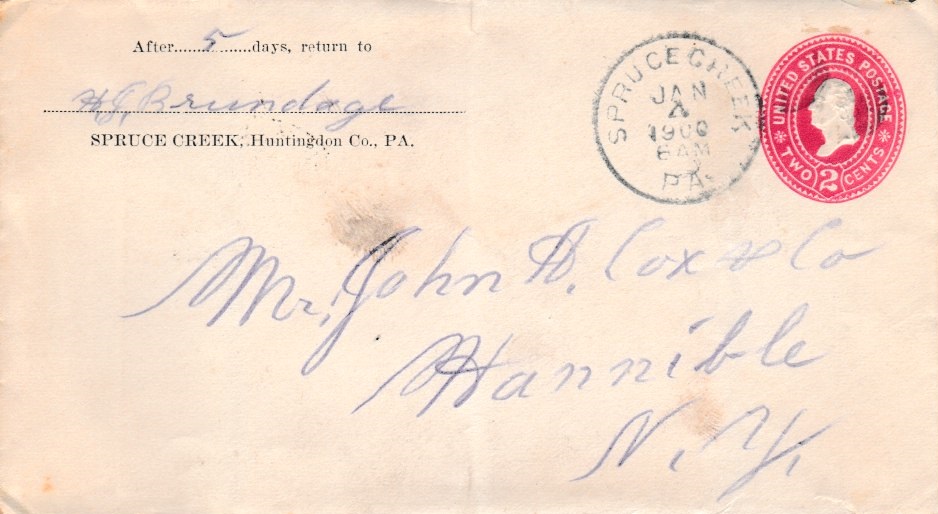 After........5........days, return to
H.J. Brundage
SPRUCE CREEK, Huntingdon Co., PA.
SPRUCE CREEK
JAN
1900
6 AM
PA.
UNITED STATES POSTAGE
TWO 2 CENTS
Mr. John H. Cox & Co
Hannible
N.Y.